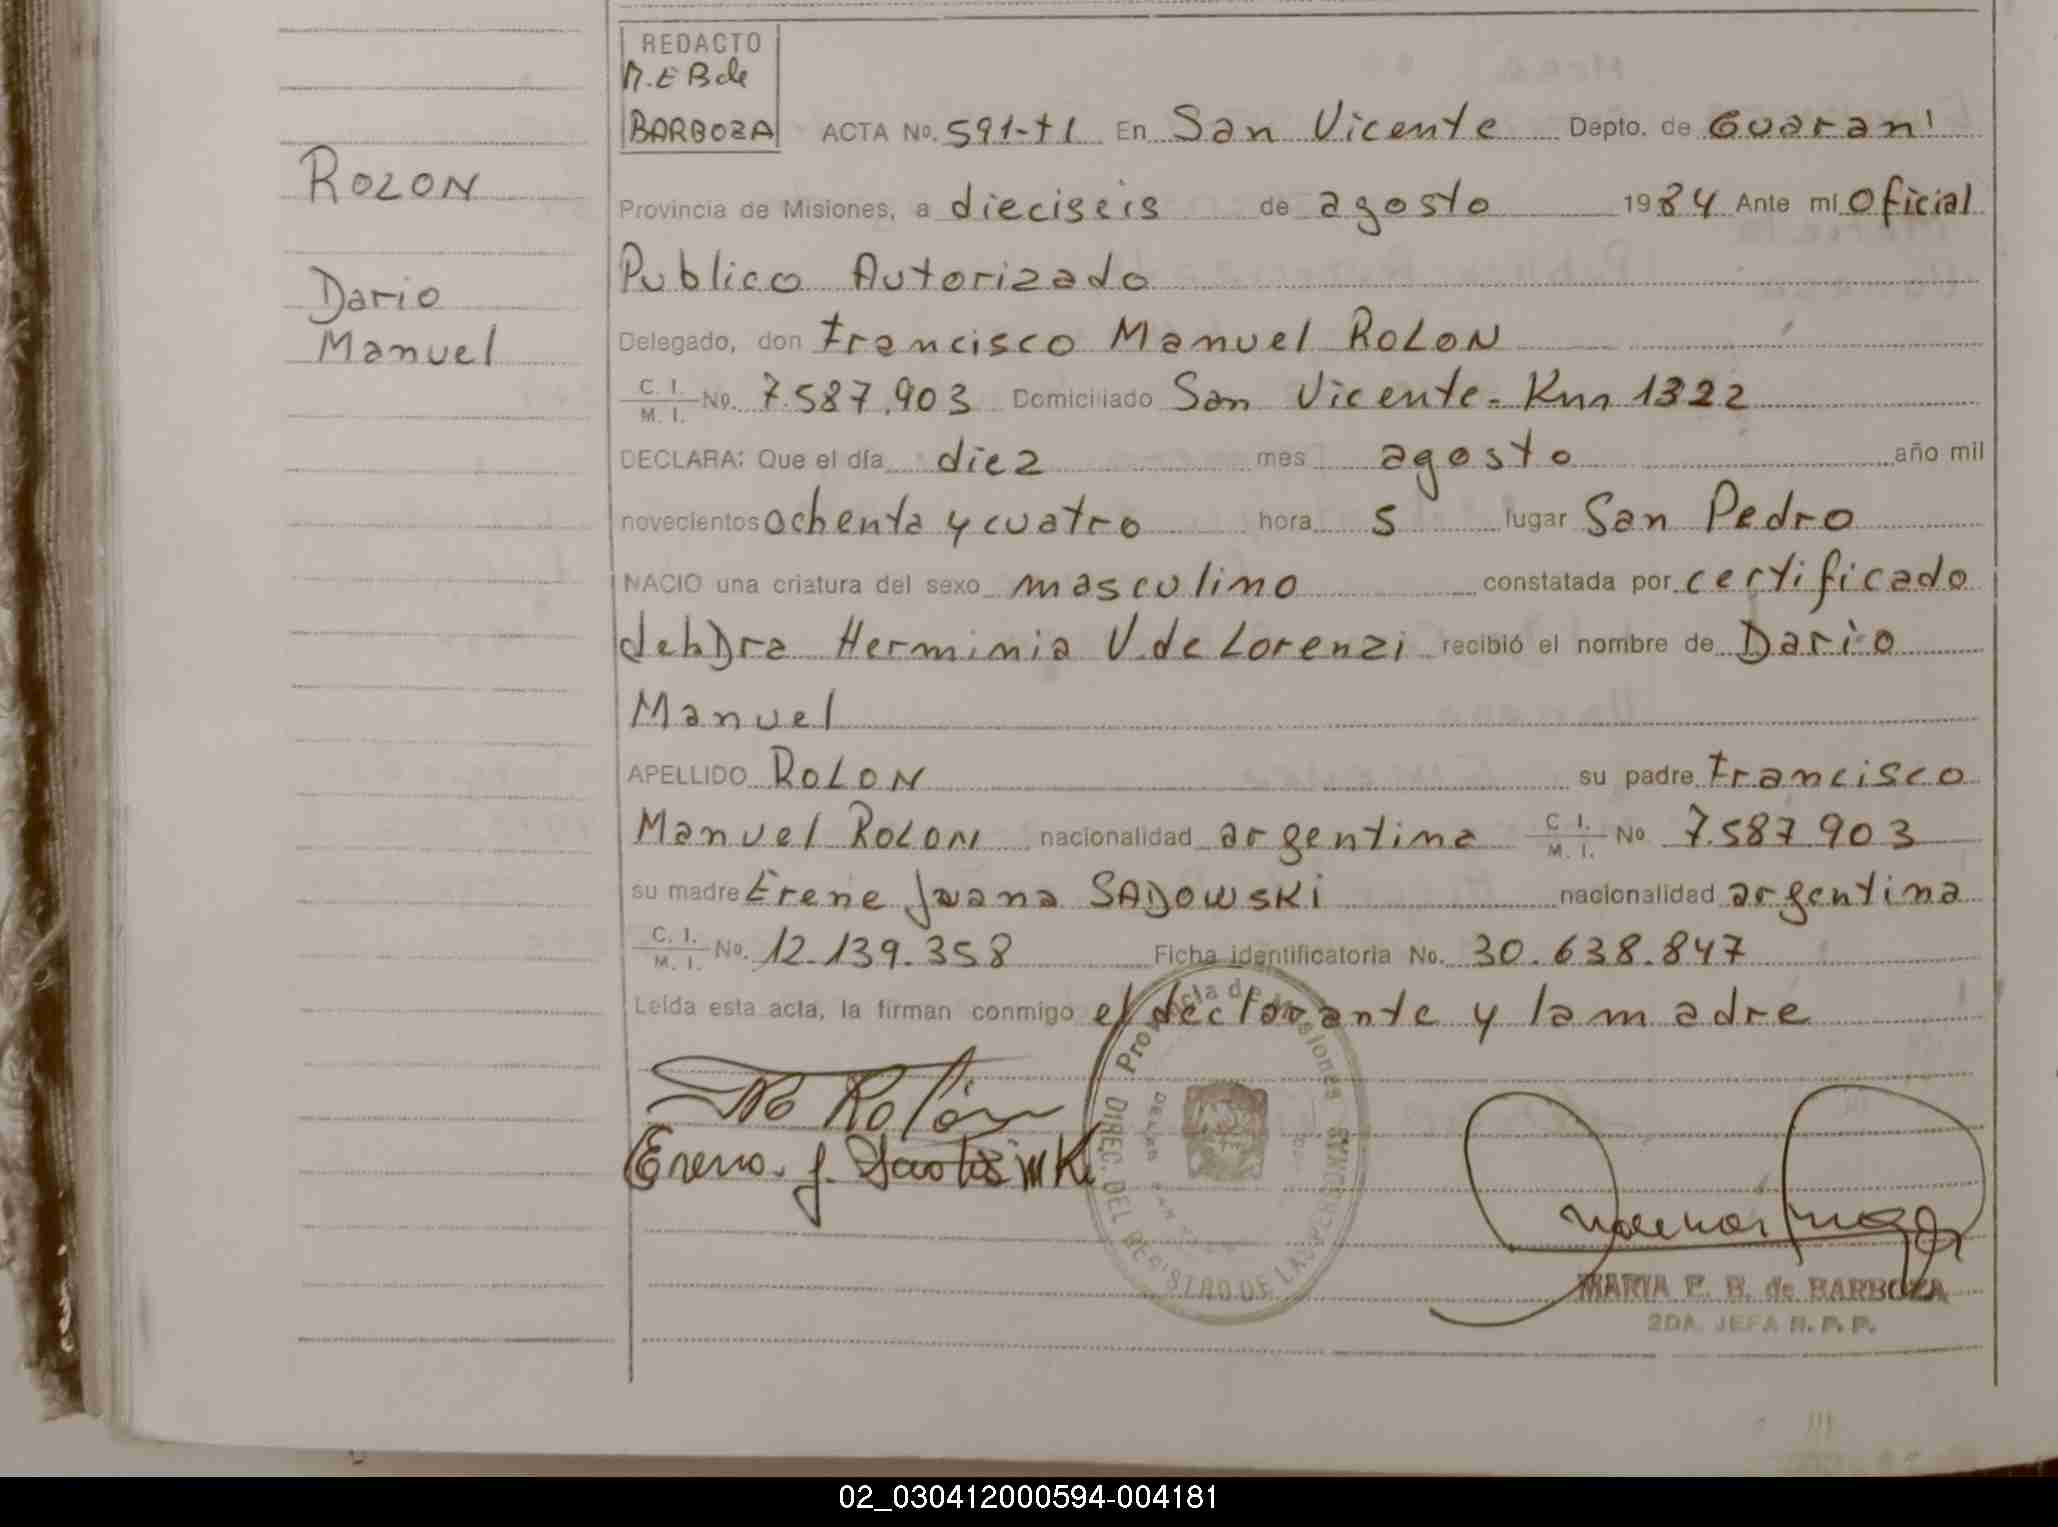 REDACTO
M. E B de
BARBOZA
ACTA No. 591-TI En San Vicente Depto. de Guaraní
ROLON
Provincia de Misiones, a dieciseis de agosto 1984 Ante mí Oficial
Publico Autorizado
Dario
Manuel
Delegado, don Francisco Manuel ROLON
C. I. M. I. No. 7.587.903 Domiciliado San Vicente - Km 1322
DECLARA: Que el día diez mes agosto año mil
novecientos ochenta y cuatro hora 5 lugar San Pedro
NACIO una criatura del sexo masculino constatada por certificado
de la Dra Herminia V. de Lorenzi recibió el nombre de Dario
Manuel
APELLIDO ROLON su padre Francisco
Manuel ROLON nacionalidad argentina C. I. M. I. No 7.587.903
su madre Erene Juana SADOWSKI nacionalidad argentina
C. I. M. I. No. 12.139.358 Ficha identificatoria No. 30.638.847
Leída esta acta, la firman conmigo el declarante y la madre
Rolón
Provincia de Misiones
DIREC. DEL REGISTRO DE LAS PERSONAS
MARIA E. B. de BARBOZA
2DA. JEFA R. P. P.
02_030412000594-004181